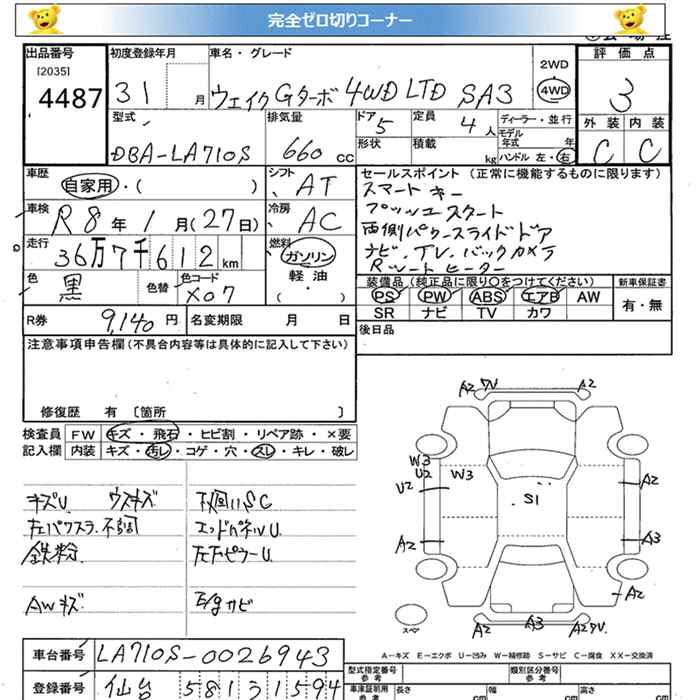 完全ゼロ切りコーナー
出品番号
[2035]
4487
初度登録年月
31 月
車名・グレード
ウェイク Gターボ 4WD LTD SA3
2WD
4WD
評価点
3
外装 内装
C C
型式
DBA-LA710S
排気量
660 cc
ドア
5
形状
定員
4 人
積載
kg
ディーラー・並行
モデル年式 年
ハンドル 左・右
車歴
自家用・( )
シフト
AT
車検
R8年1月(27日)
冷房
AC
走行
36万7千612km
燃料
ガソリン
軽油
( ・ )
色
黒
色替
色コード
X07
セールスポイント (正常に機能するものに限ります)
スマートキー
プッシュスタート
両側パワースライドドア
ナビ・TV・バックカメラ
Rシートヒーター
装備品 (純正品に限り○をつけてください)
PS PW ABS エアB AW
SR ナビ TV カワ
新車保証書
有・無
R券 9,140円
名変期限 月 日
後日品
注意事項申告欄(不具合内容等は具体的に記入して下さい)
修復歴 有 〔箇所 〕
検査員
記入欄
FW キズ・飛石・ヒビ割・リペア跡・×要
内装 キズ・汚レ・コゲ・穴・スレ・キレ・破レ
キズU ウスキズ
左パワスラ不調
鉄粉
AWキズ
下廻りSC
エンドパネルU
左下ピラーU
E/gサビ
A2 A2
W3
U2 W3
U2
S1
A2
A2
A3
A2
A2 A3
スペア
A-キズ E-エクボ U-凹み W-補修跡 S-サビ C-腐食 XX-交換済
車台番号 LA710S-0026943
登録番号 仙台 581 い 1594
型式指定番号
参考
類別区分番号
参考
車庫証明用
参考
長さ cm
幅 cm
高さ cm